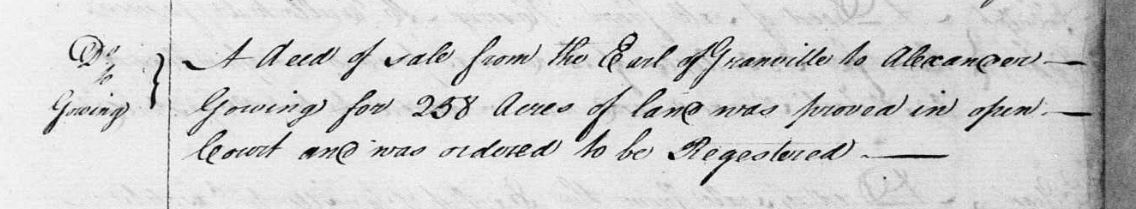 Do
to
Gowing
A deed of sale from the Earl of Granville to Alexander
Gowing for 258 Acres of land was proved in open
Court and was ordered to be Regestered